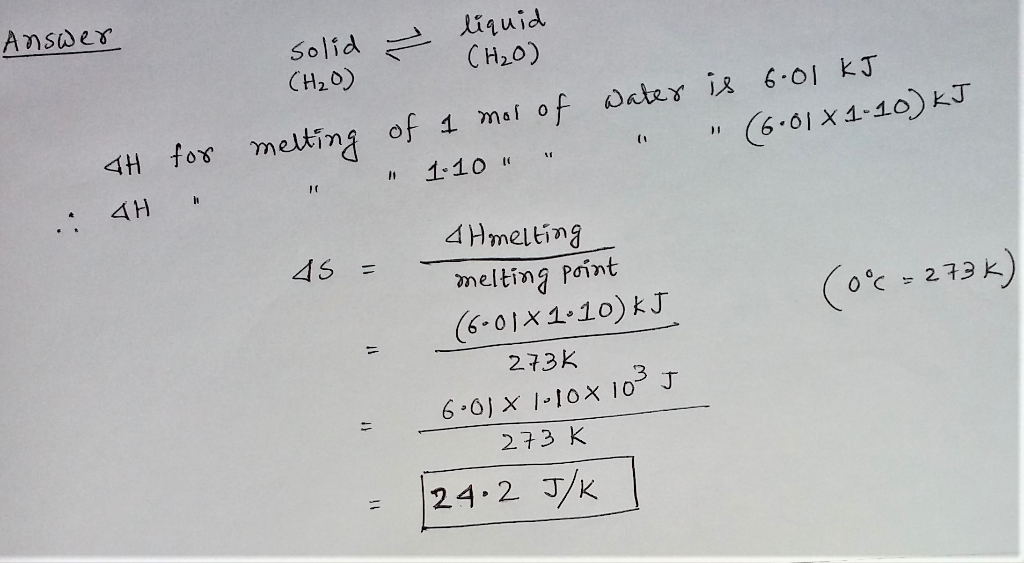 Answer
Solid ⇌ liquid
(H₂O) (H₂O)
ΔH for melting of 1 mol of water is 6.01 kJ
∴ ΔH " " " 1.10 " " " " (6.01 X 1.10) kJ
ΔS = ΔHmelting / melting point
(0°C = 273 K)
= (6.01 X 1.10) kJ / 273K
= 6.01 X 1.10 X 10³ J / 273 K
= 24.2 J/K